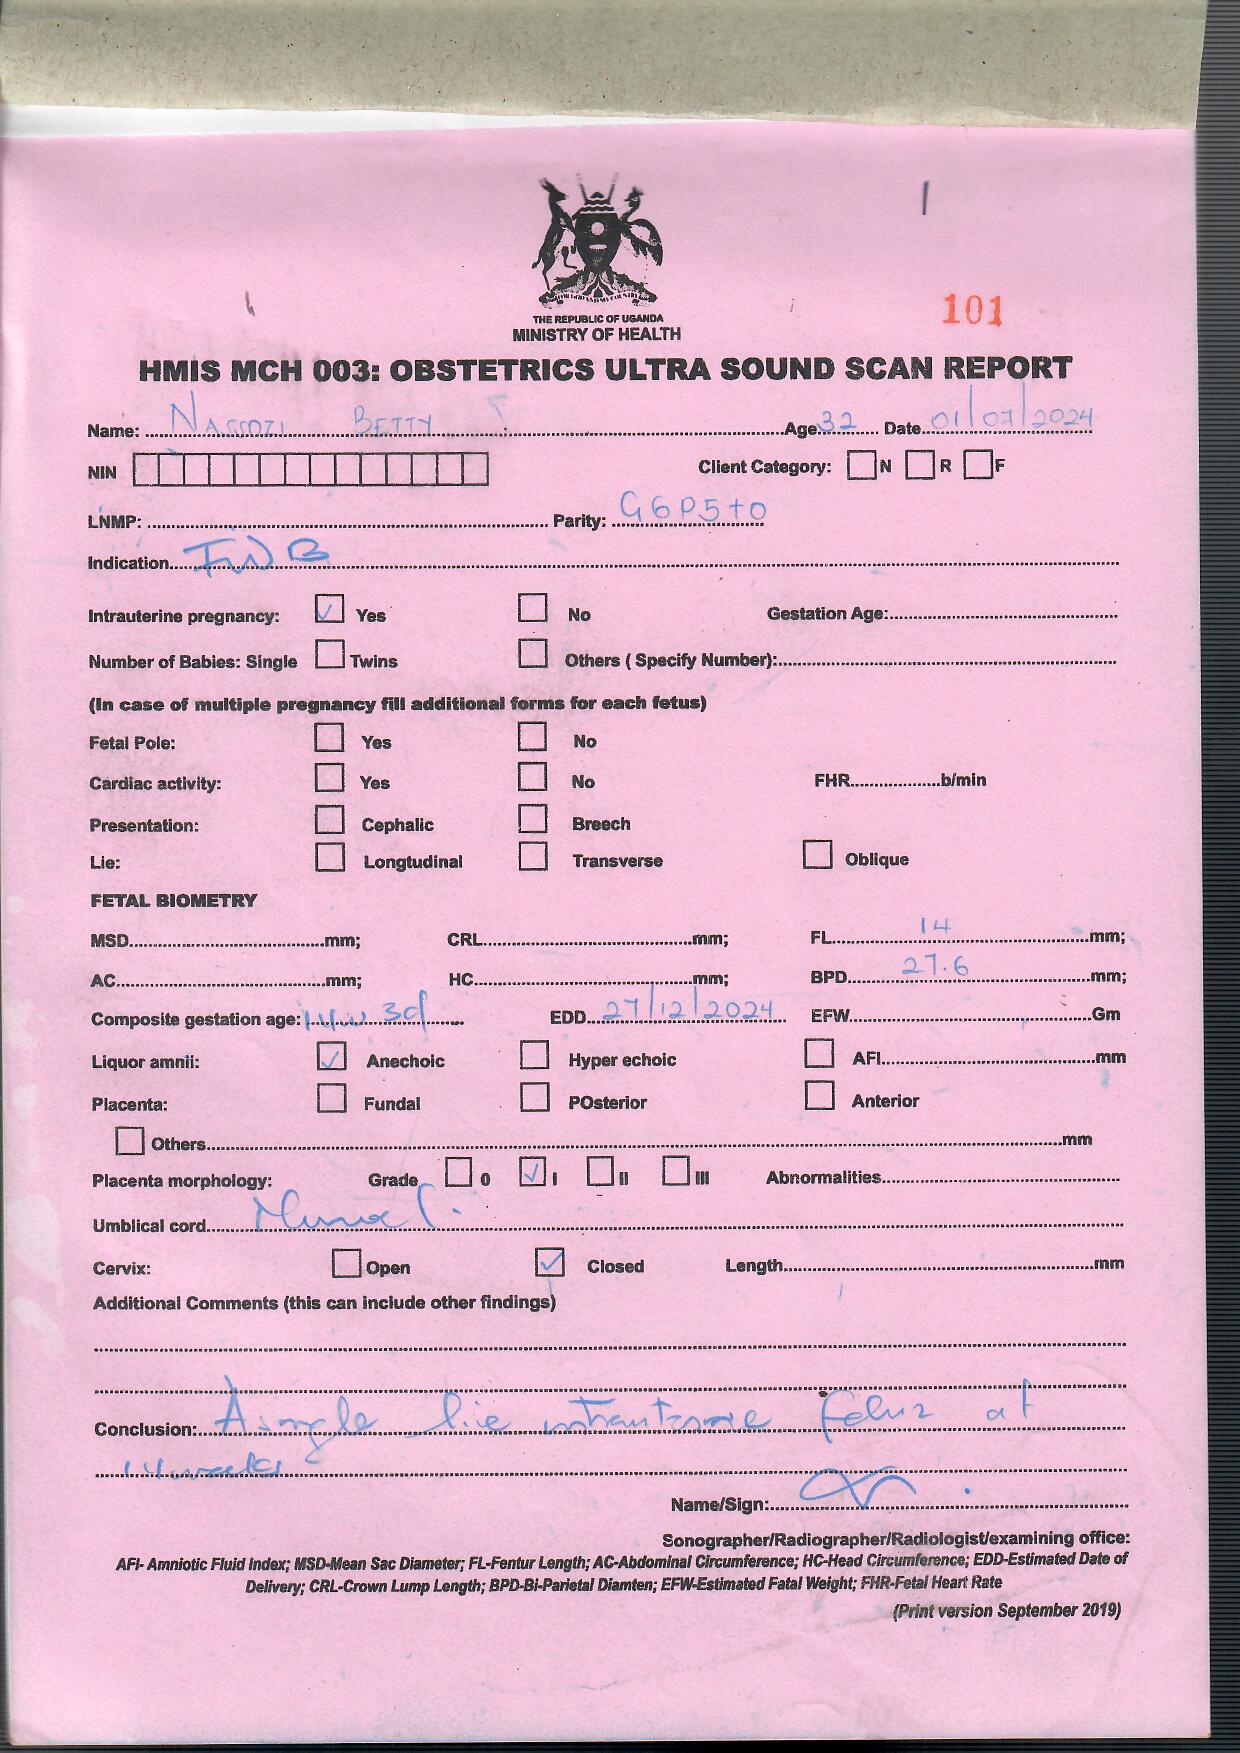 101
THE REPUBLIC OF UGANDA
MINISTRY OF HEALTH
HMIS MCH 003: OBSTETRICS ULTRA SOUND SCAN REPORT
Name: NASSOZI BETTY Age 32 Date 01/07/2024
NIN Client Category: N R F
LNMP: Parity: G6P5+0
Indication FWB
Intrauterine pregnancy: ✓ Yes No Gestation Age:
Number of Babies: Single Twins Others ( Specify Number):
(In case of multiple pregnancy fill additional forms for each fetus)
Fetal Pole: Yes No
Cardiac activity: Yes No FHR b/min
Presentation: Cephalic Breech
Lie: Longtudinal Transverse Oblique
FETAL BIOMETRY
MSD mm; CRL mm; FL 14 mm;
AC mm; HC mm; BPD 27.6 mm;
Composite gestation age: 14w 3d EDD 27/12/2024 EFW Gm
Liquor amnii: ✓ Anechoic Hyper echoic AFI mm
Placenta: Fundal POsterior Anterior
Others mm
Placenta morphology: Grade 0 ✓ I II III Abnormalities
Umblical cord
Cervix: Open ✓ Closed Length mm
Additional Comments (this can include other findings)
Conclusion: A single live intrauterine fetus at
14 weeks
Name/Sign:
Sonographer/Radiographer/Radiologist/examining office:
AFI- Amniotic Fluid Index; MSD-Mean Sac Diameter; FL-Fentur Length; AC-Abdominal Circumference; HC-Head Circumference; EDD-Estimated Date of
Delivery; CRL-Crown Lump Length; BPD-Bi-Parietal Diamten; EFW-Estimated Fatal Weight; FHR-Fetal Heart Rate
(Print version September 2019)